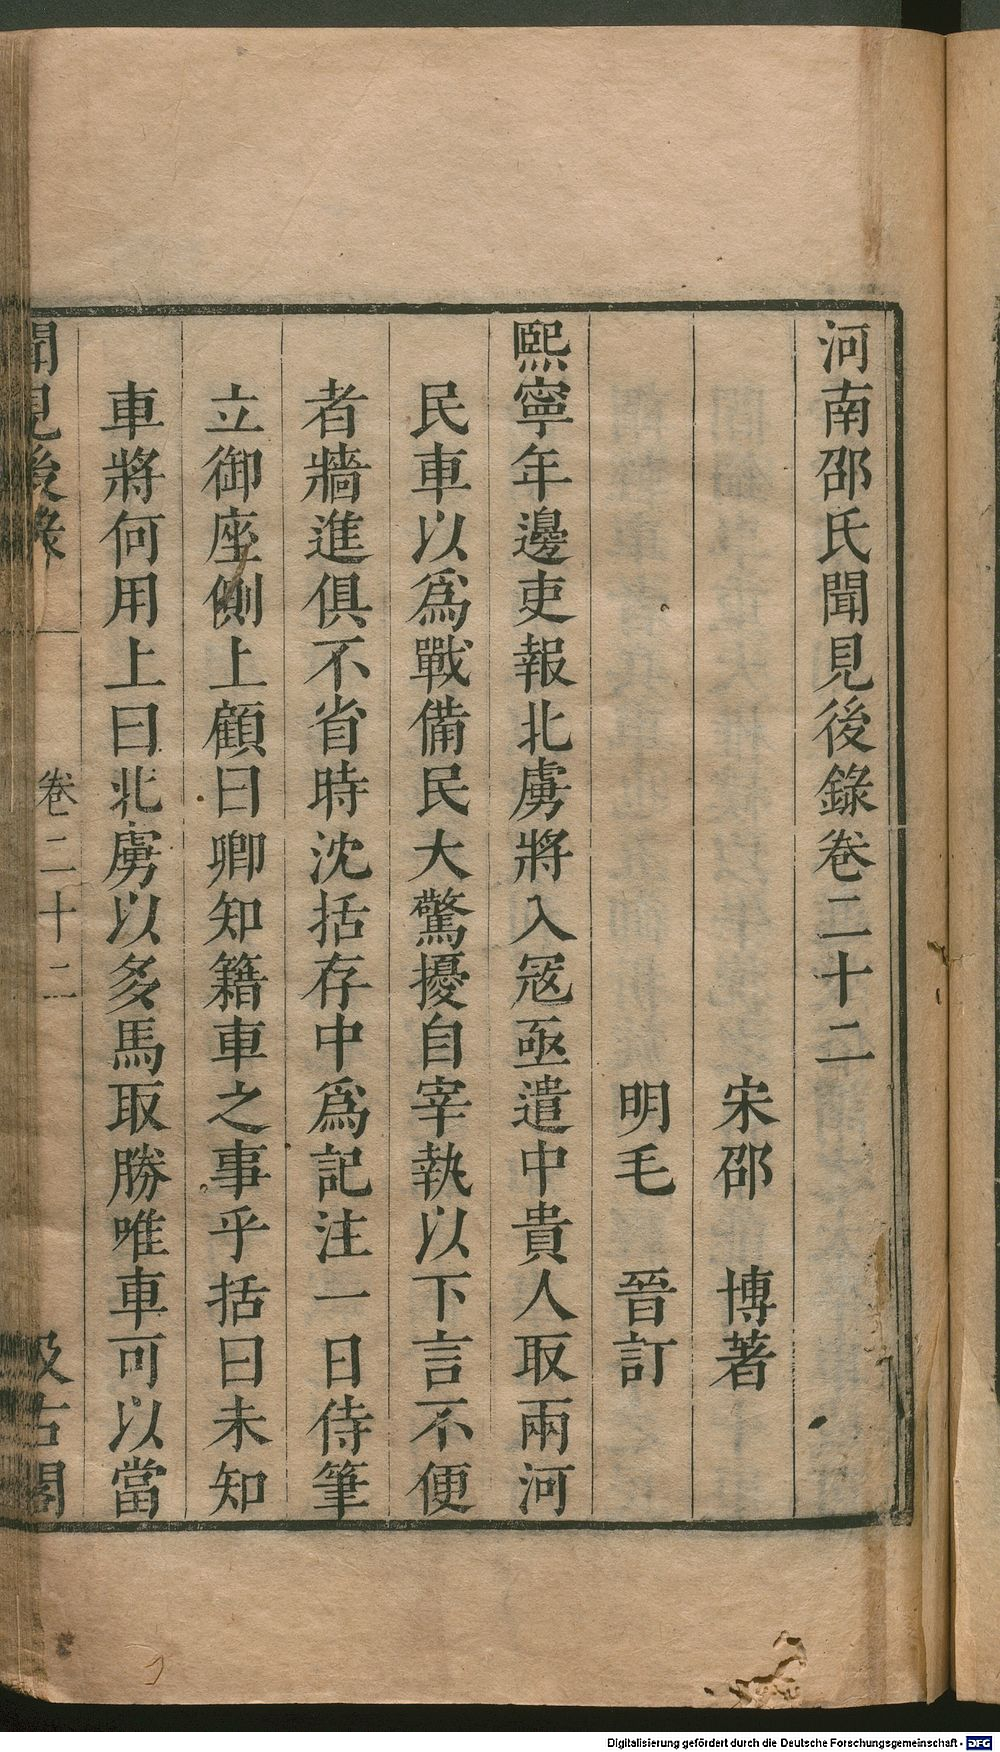 河南邵氏聞見後錄卷二十二
宋邵　博著
明毛　晉訂
熙寧年邊吏報北虜將入寇亟遣中貴人取兩河
民車以爲戰備民大驚擾自宰執以下言不便
者牆進俱不省時沈括存中爲記注一日侍筆
立御座側上顧曰卿知籍車之事乎括曰未知
車將何用上曰北虜以多馬取勝唯車可以當
聞見後錄　卷二十二　汲古閣
Digitalisierung gefördert durch die Deutsche Forschungsgemeinschaft - DFG